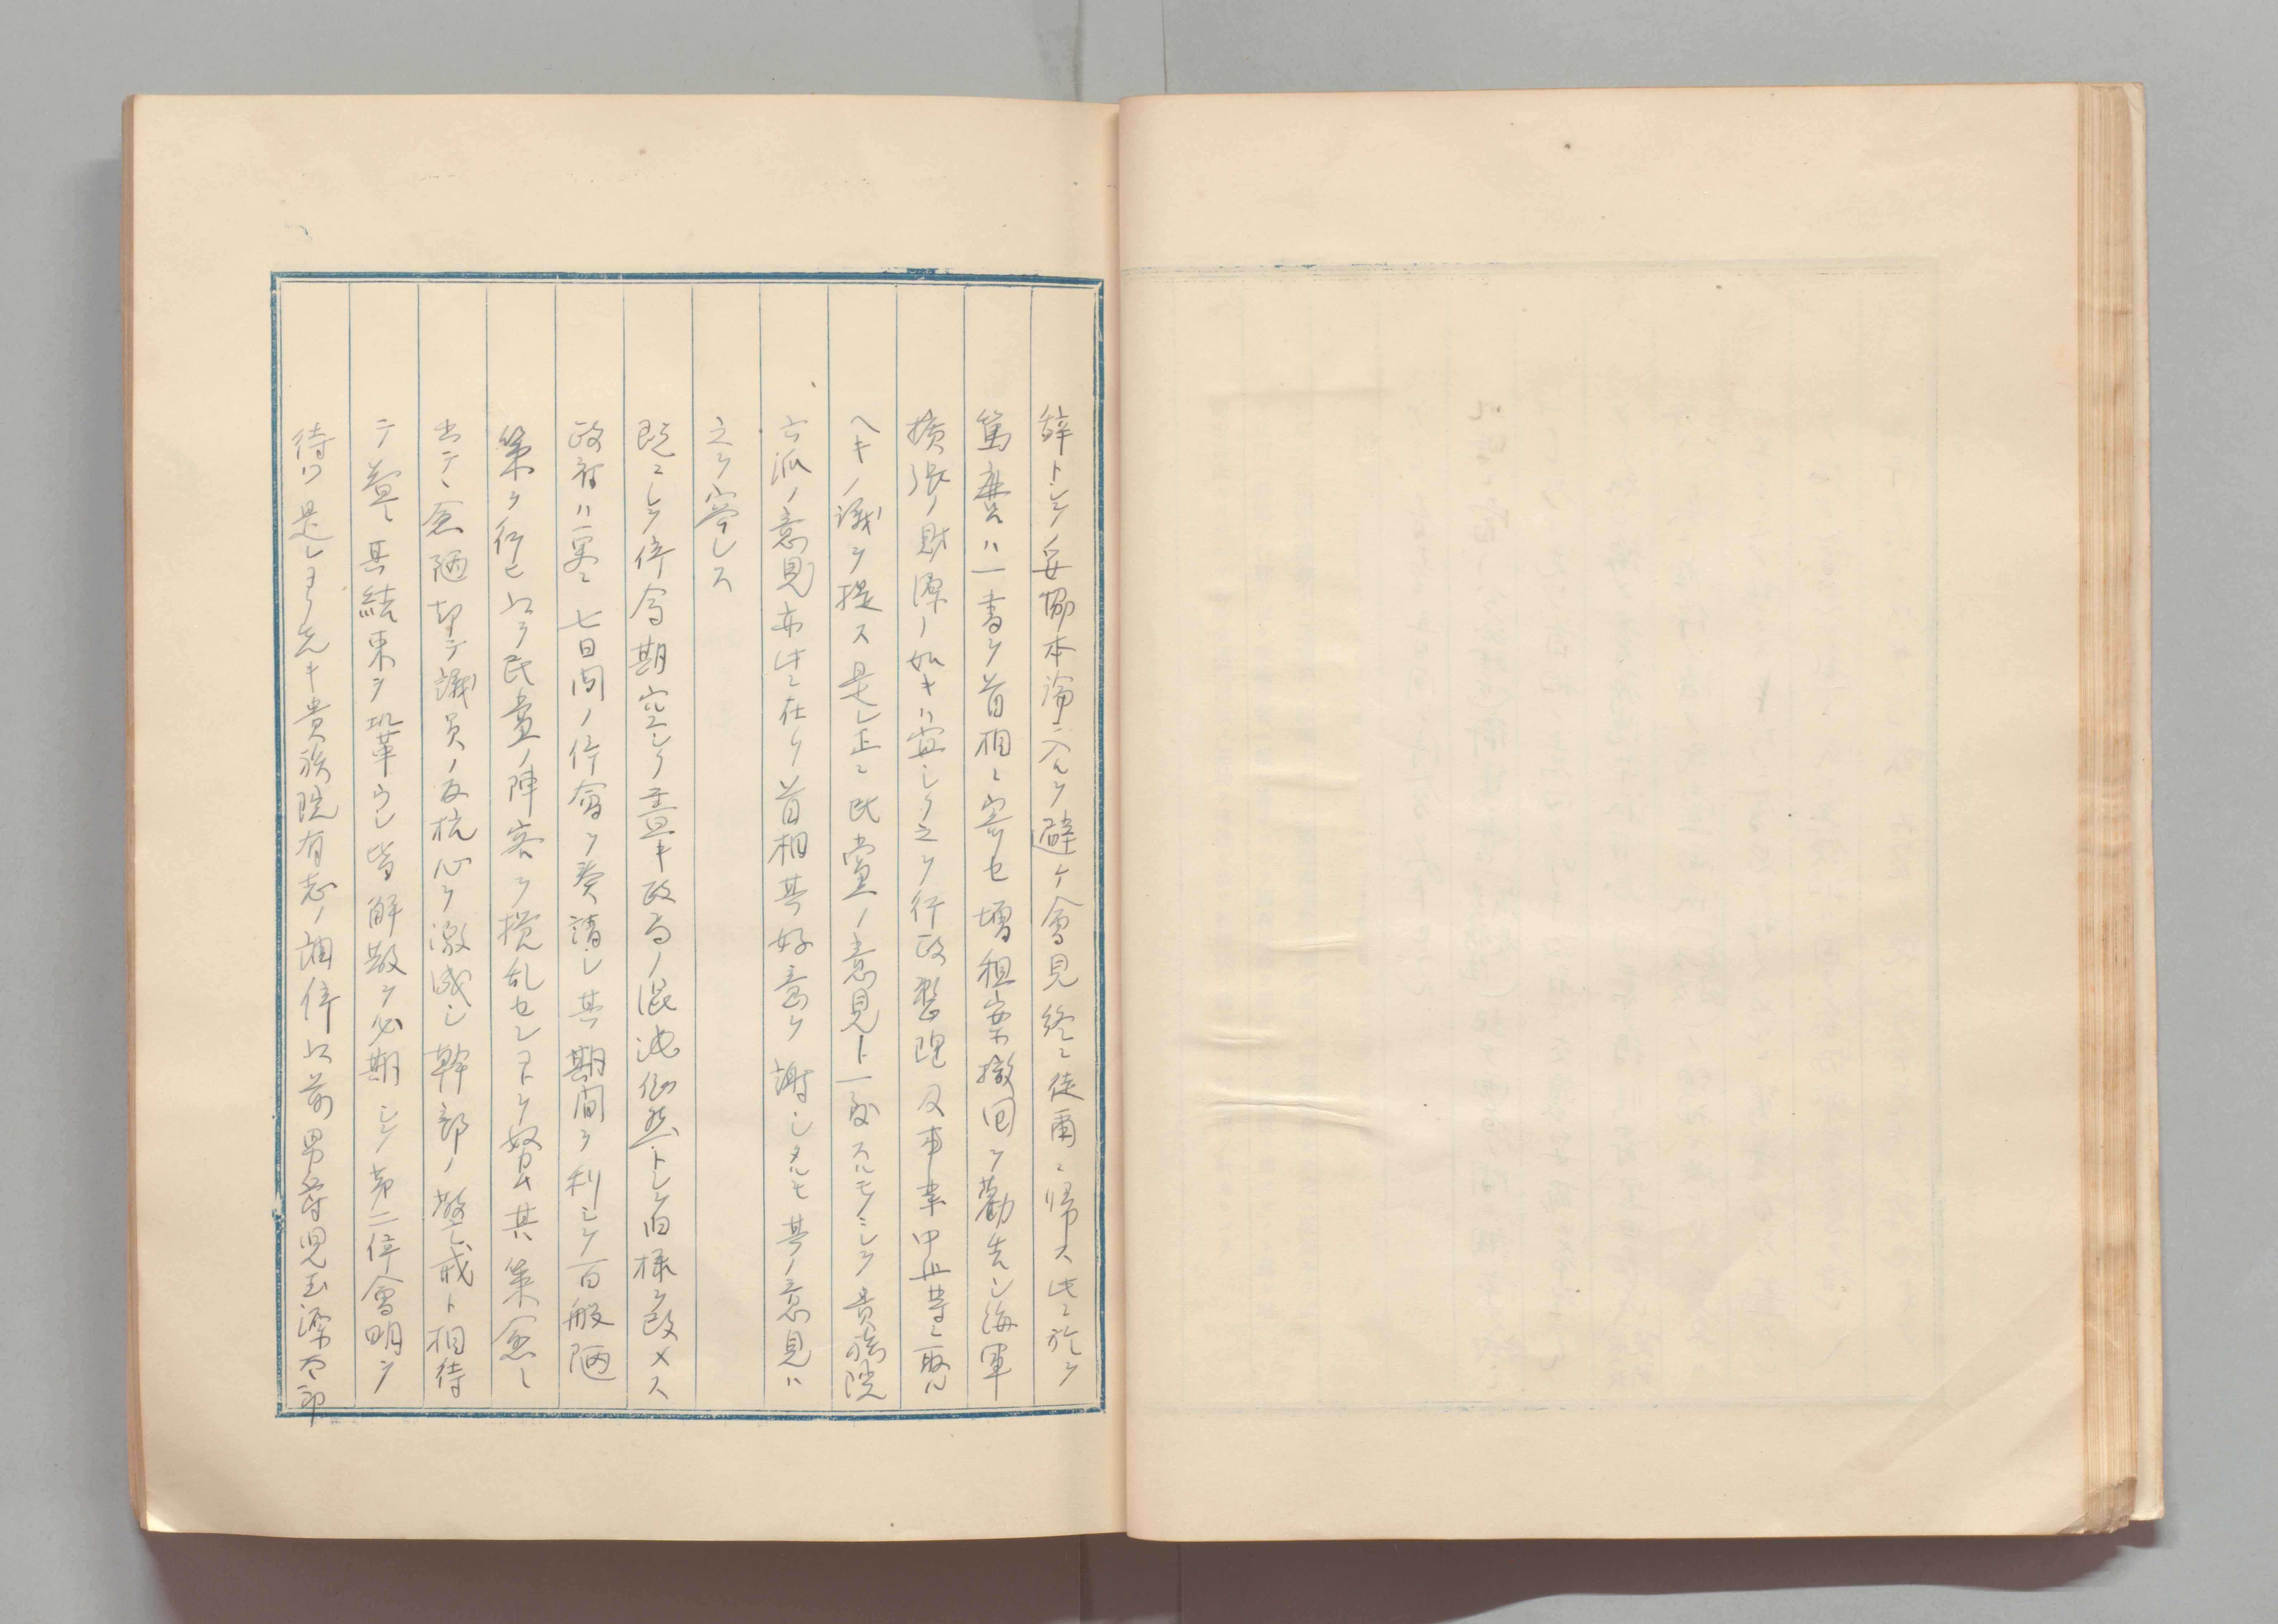 辞トシテ妥協本論ニ入ルヲ避ケ會見終ニ徒爾ニ帰ス此ニ於テ
篤麿ハ一書ヲ首相ニ寄セ増租案撤回ヲ勧告シ海軍
擴張ノ財源ノ如キハ宜シク之ヲ行政整理及事業中止等ニ取ル
ヘキノ議ヲ提ス是レ正ニ民黨ノ意見ト一致スルモノニシテ貴族院
六派ノ意見亦此ニ在リ首相其好意ヲ謝シタルモ其ノ意見ハ
之ヲ容レス
既ニシテ停會期空シク盡キ政局ノ混沌依然トシテ旧様ヲ改メス
政府ハ更ニ七日間ノ停會ヲ奏請シ其期間ヲ利シテ百般陋
策ヲ行ヒ以テ民黨ノ陣容ヲ攪乱センコトヲ努ム其策愈〻
出テヽ愈陋却テ議員ノ反抗心ヲ激成シ幹部ノ警戒ト相待
テ益〻其結束ヲ鞏固ウシ皆解散ヲ必期シテ第二停會明ヲ
待ツ是レヨリ先キ貴族院有志ノ調停以前男爵児玉源太郎